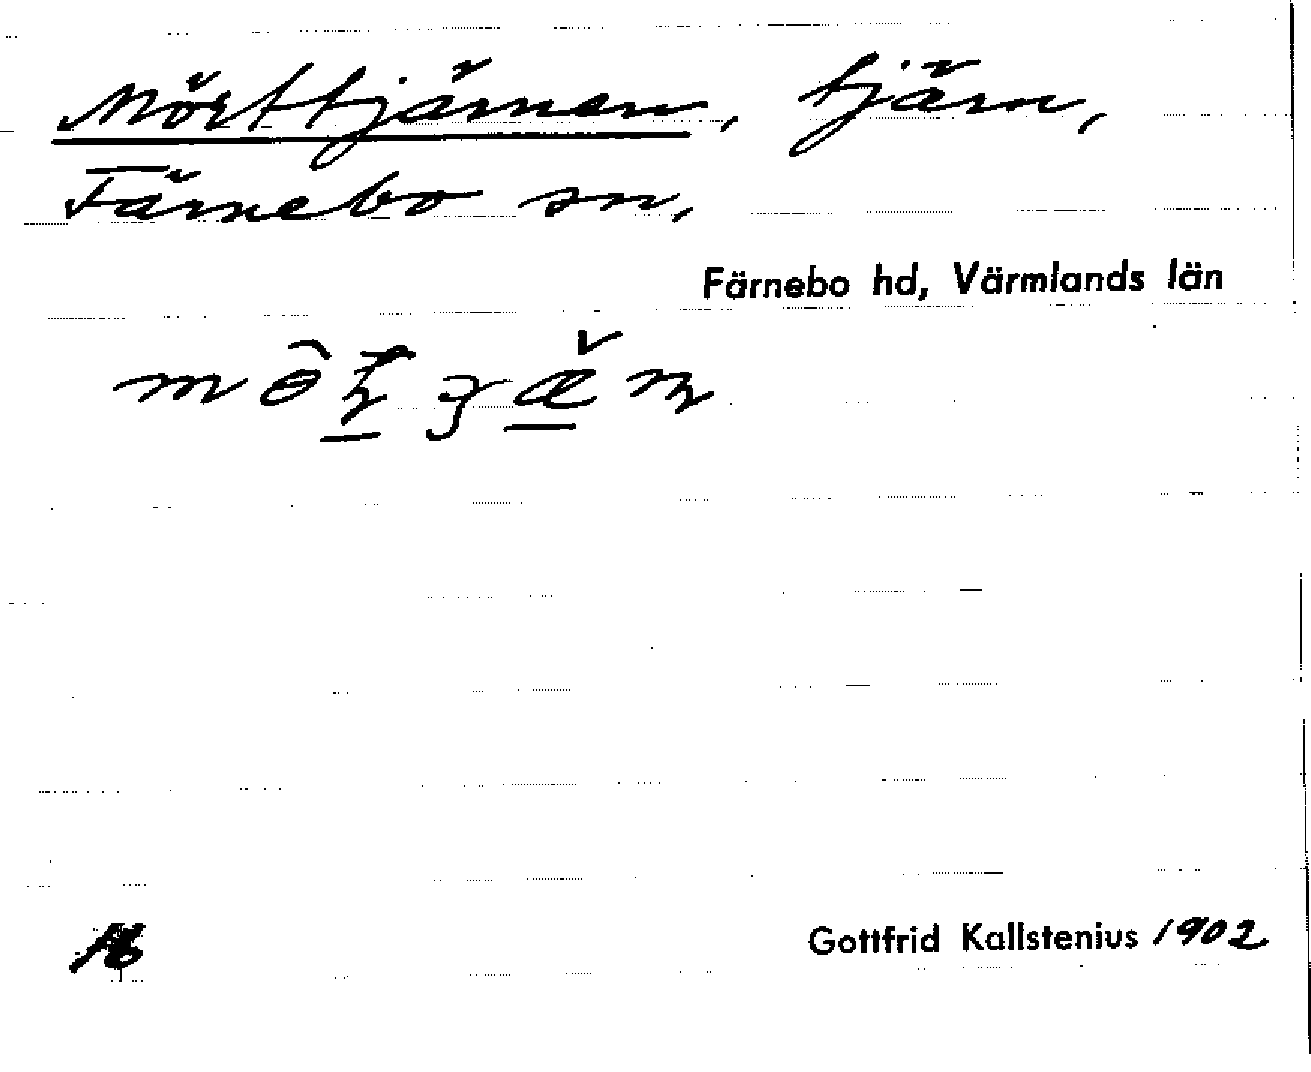 Mörttjärnen, tjärn,
Färnebo sn,
Färnebo hd, Värmlands län
16
Gottfrid Kallstenius 1902